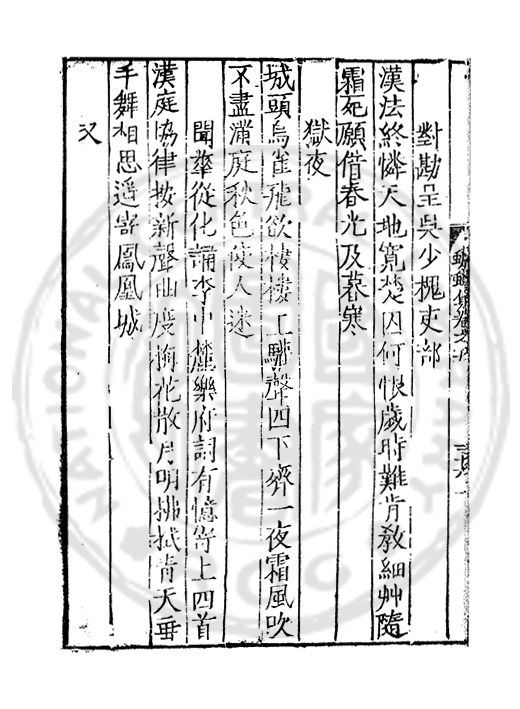 對勘呈吳少槐吏部
漢法終憐天地寬楚囚何恨歲時難肯教細艸隨
霜死願借春光及暮寒
獄夜
城頭烏雀飛欲棲樓上鼙聲四下齊一夜霜風吹
不盡滿庭秋色使人迷
聞華從化誦李中麓樂府詞有憶寄上四首
漢庭協律按新聲曲度梅花散月明拂拭青天垂
手舞相思遥寄鳳凰城
又